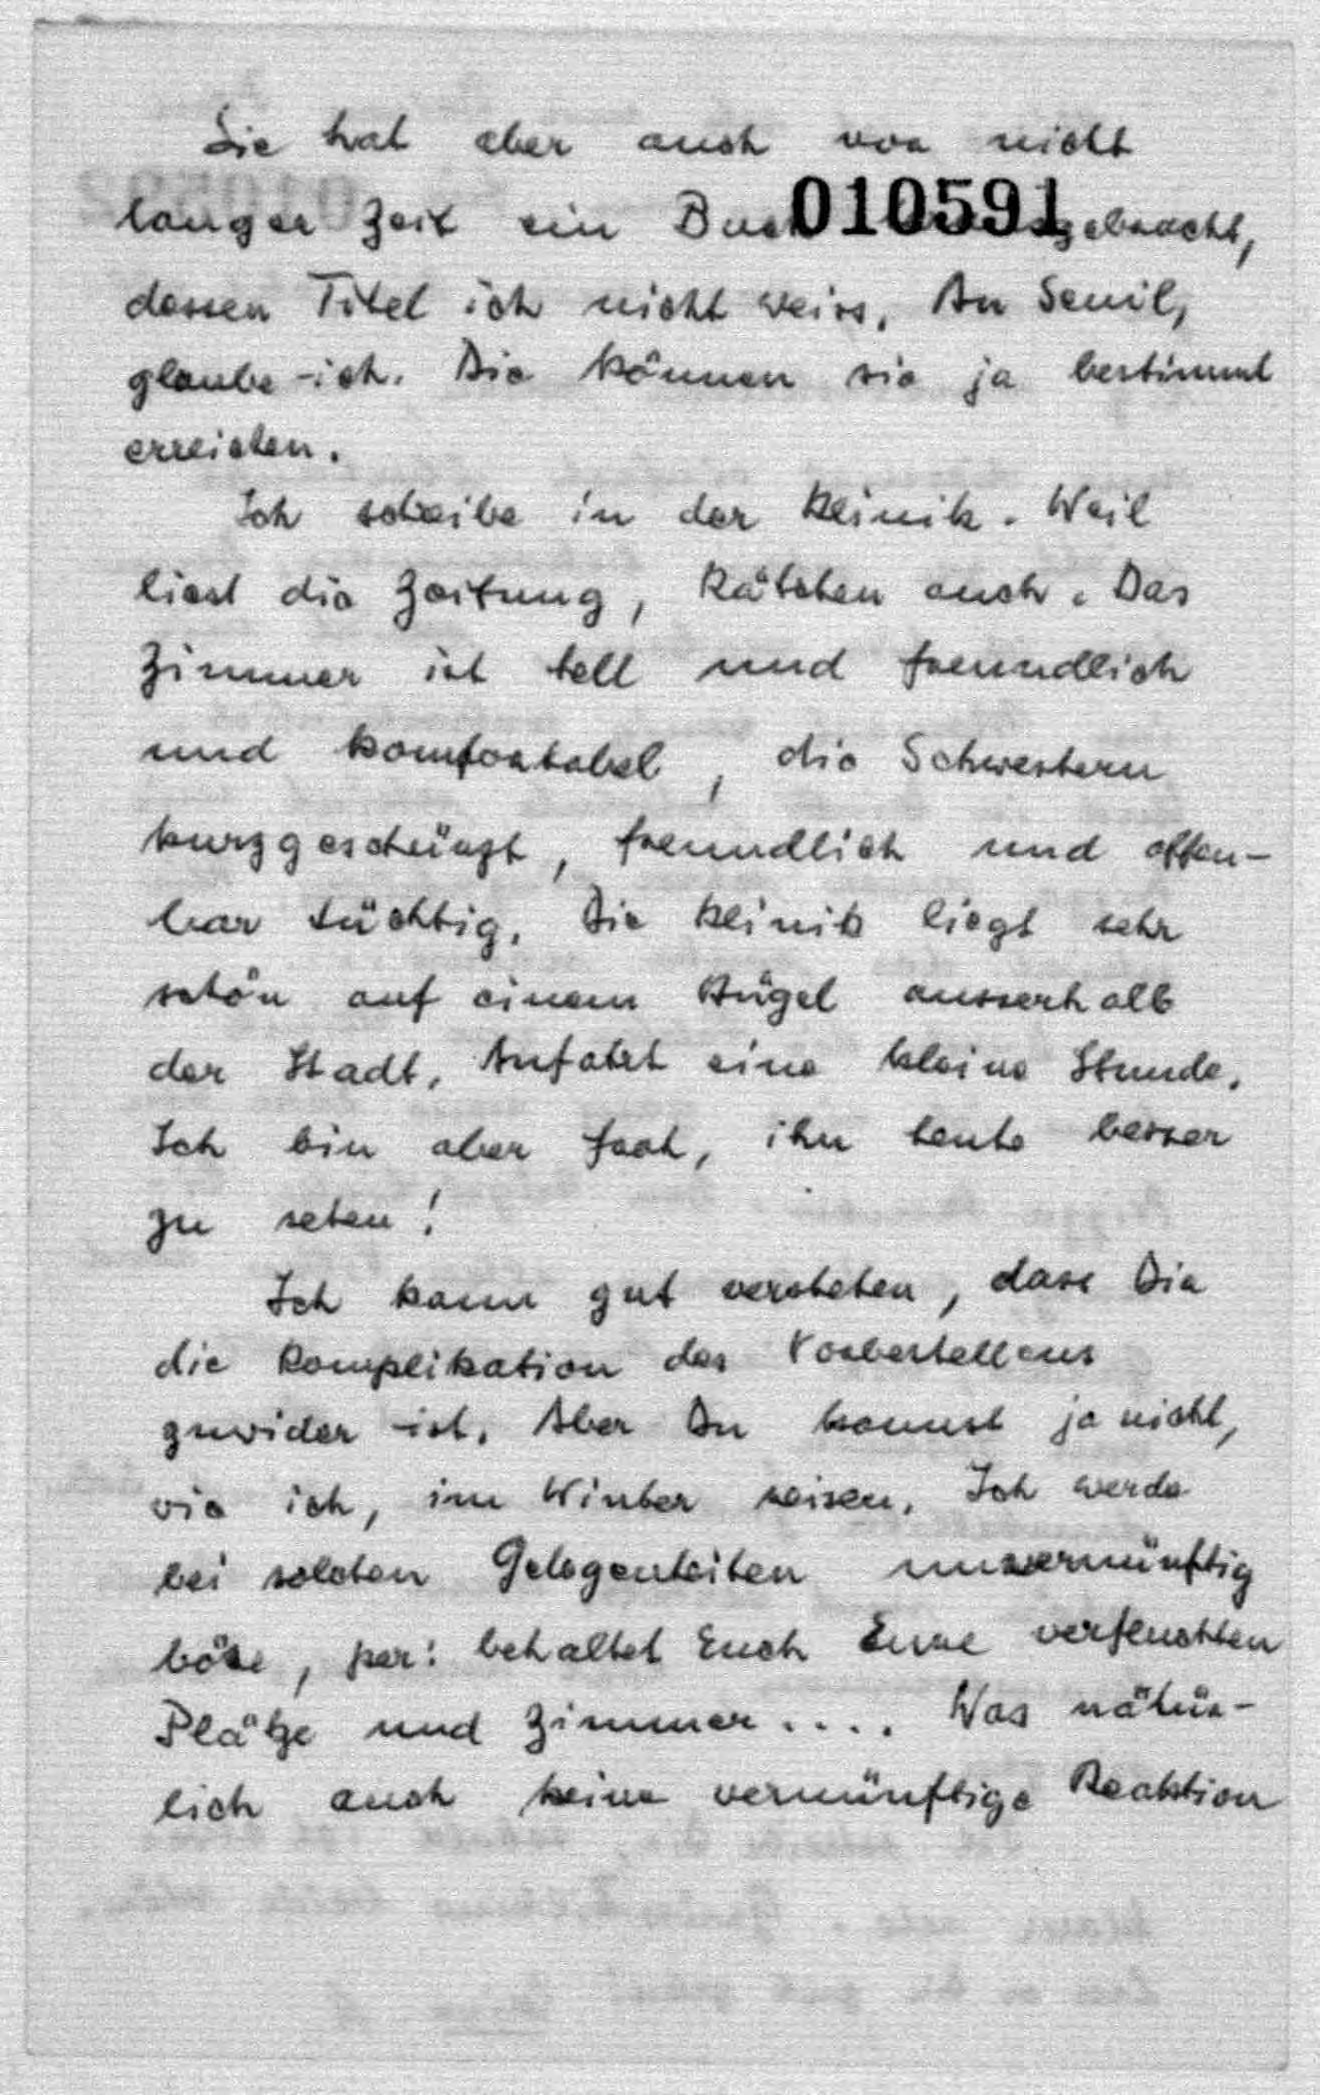 Sie hat aber auch vor nicht
langer Zeit ein Buch 010591 gebracht,
dessen Titel ich nicht weiss. An Seuil,
glaube ich. Die können sie ja bestimmt
erreichen.
Ich schreibe in der Klinik. Weil
liest die Zeitung, Kätchen auch. Das
Zimmer ist hell und freundlich
und komfortabel, die Schwestern
kurzgeschürzt, freundlich und offen-
bar tüchtig. Die Klinik liegt sehr
schön auf einem Hügel ausserhalb
der Stadt. Anfahrt eine kleine Stunde.
Ich bin aber froh, ihn heute besser
zu sehen!
Ich kann gut verstehen, dass Dir
die Komplikation des Vorbestellens
zuwider ist. Aber Du kannst ja nicht,
wie ich, im Winter reisen. Ich werde
bei solchen Gelegenheiten unvernünftig
böse, per: behaltet Euch Eure verfluchten
Plätze und Zimmer.... Was natür-
lich auch keine vernünftige Reaktion